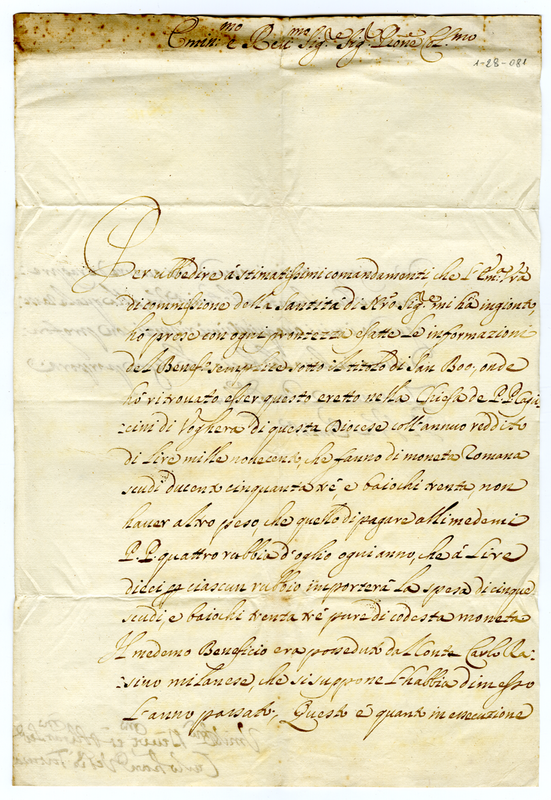 Emin.mo e Rev.mo Sig.r Sig.r Pron.e Col.mo
1-28-081
Per ubbedire à stimatissimi comandamenti che l'Em.za V.ra
di commissione della Santità di N'ro Sig.re mi hà ingionto
ho prese con ogni prontezza esatte le informazioni
del Benef.o semplice sotto il titolo di San Boo; onde
hò ritrovato esser questo eretto nella Chiesa de P.P.
cini di Voghera di questa Diocese coll'annuo reddito
di Lire mille novecento, che fanno di moneta Romana
scudi ducento cinquanta trè e baiochi trenta, non
haver altro peso che quello di pagare alli medemi
P.P. quattro rubbia d'oglio ogni anno, che à Lire
dieci p ciascun rubbio importerà la spesa di cinque
scudi, e baiochi trenta trè pure di codesta moneta
Il medemo Beneficio era posseduto dal Conte Carlo Ra=
=sino milanese, che si suppone l'habbia dimesso
l'anno passato, Questo è quanto in essecuzione